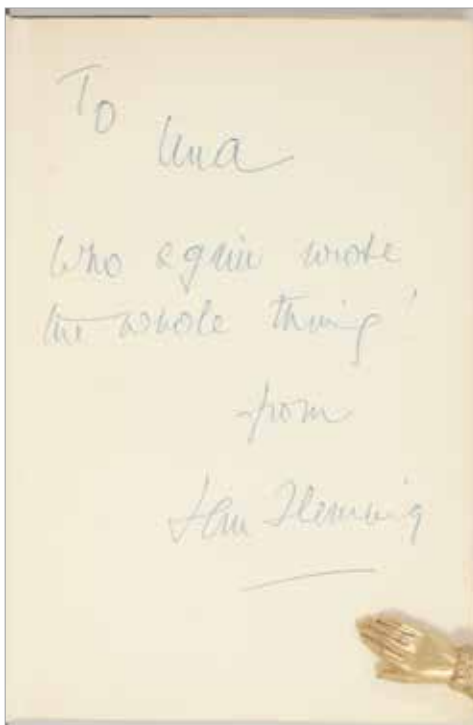 To
Una
who again wrote
the whole thing!
from
Ian Fleming